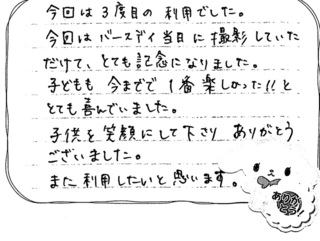 今回は3度目の利用でした。
今回はバースデイ当日に撮影していた
だけて、とても記念になりました。
子どもも今までで1番楽しかった!!と
とても喜んでいました。
子供を笑顔にして下さりありがとう
ございました。
また利用したいと思います。
ありがとう